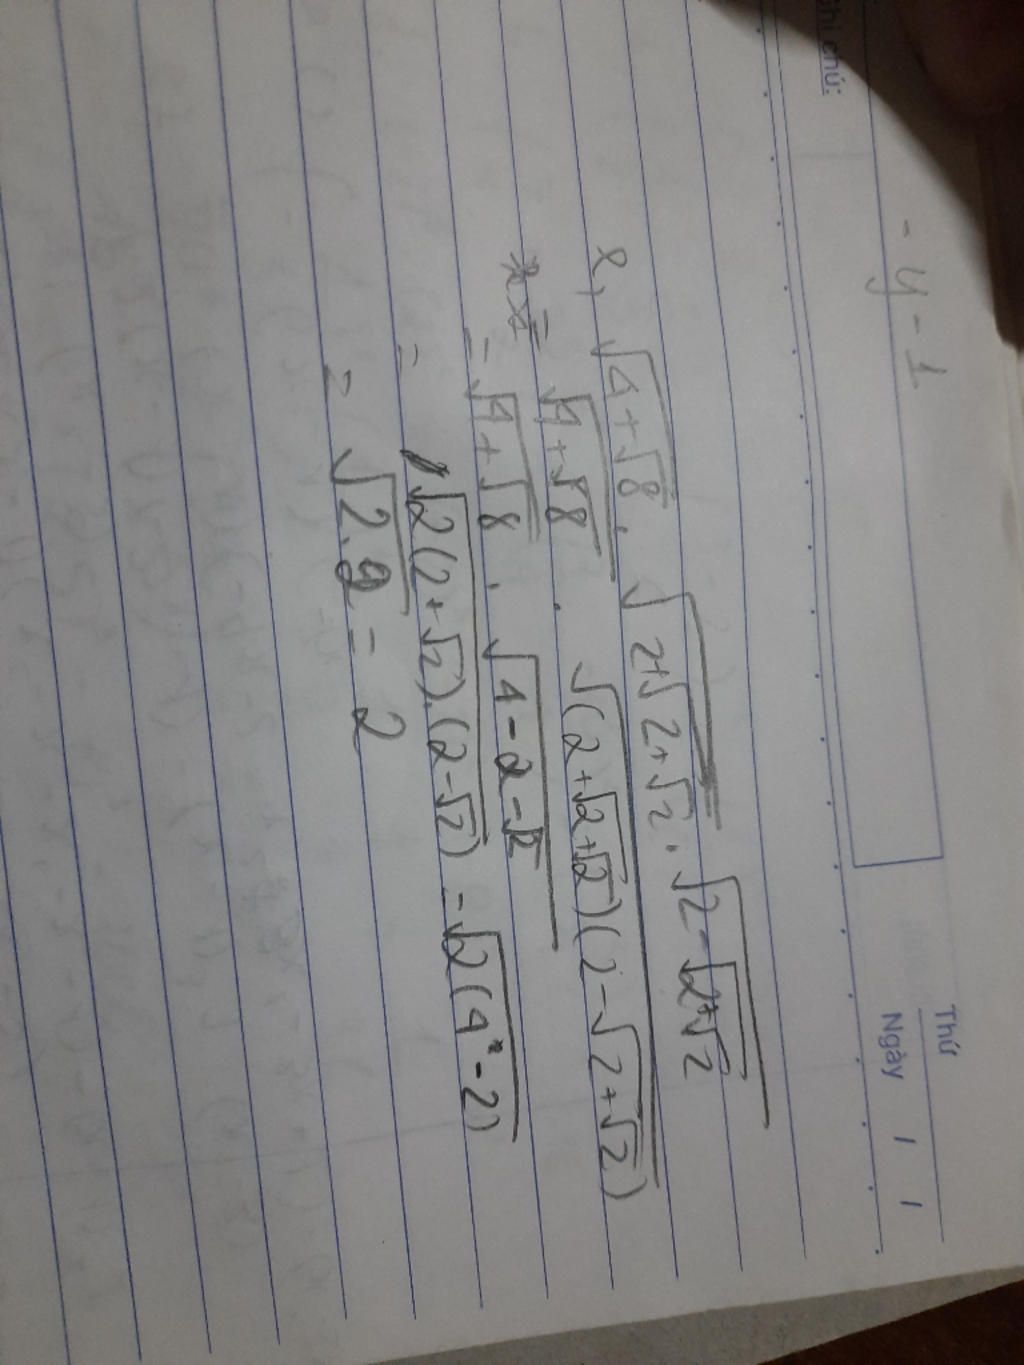 Ghi chú:
Thứ
Ngày / /
- y - 1
l, √(4+√8) . √(2+√(2+√2)) . √(2-√(2+√2))
= √(4+√8) . √((2+√(2+√2))(2-√(2+√2)))
= √(4+√8) . √(4-2-√2)
= √(2(2+√2).(2-√2)) = √(2(4-2))
= √(2.2) = 2